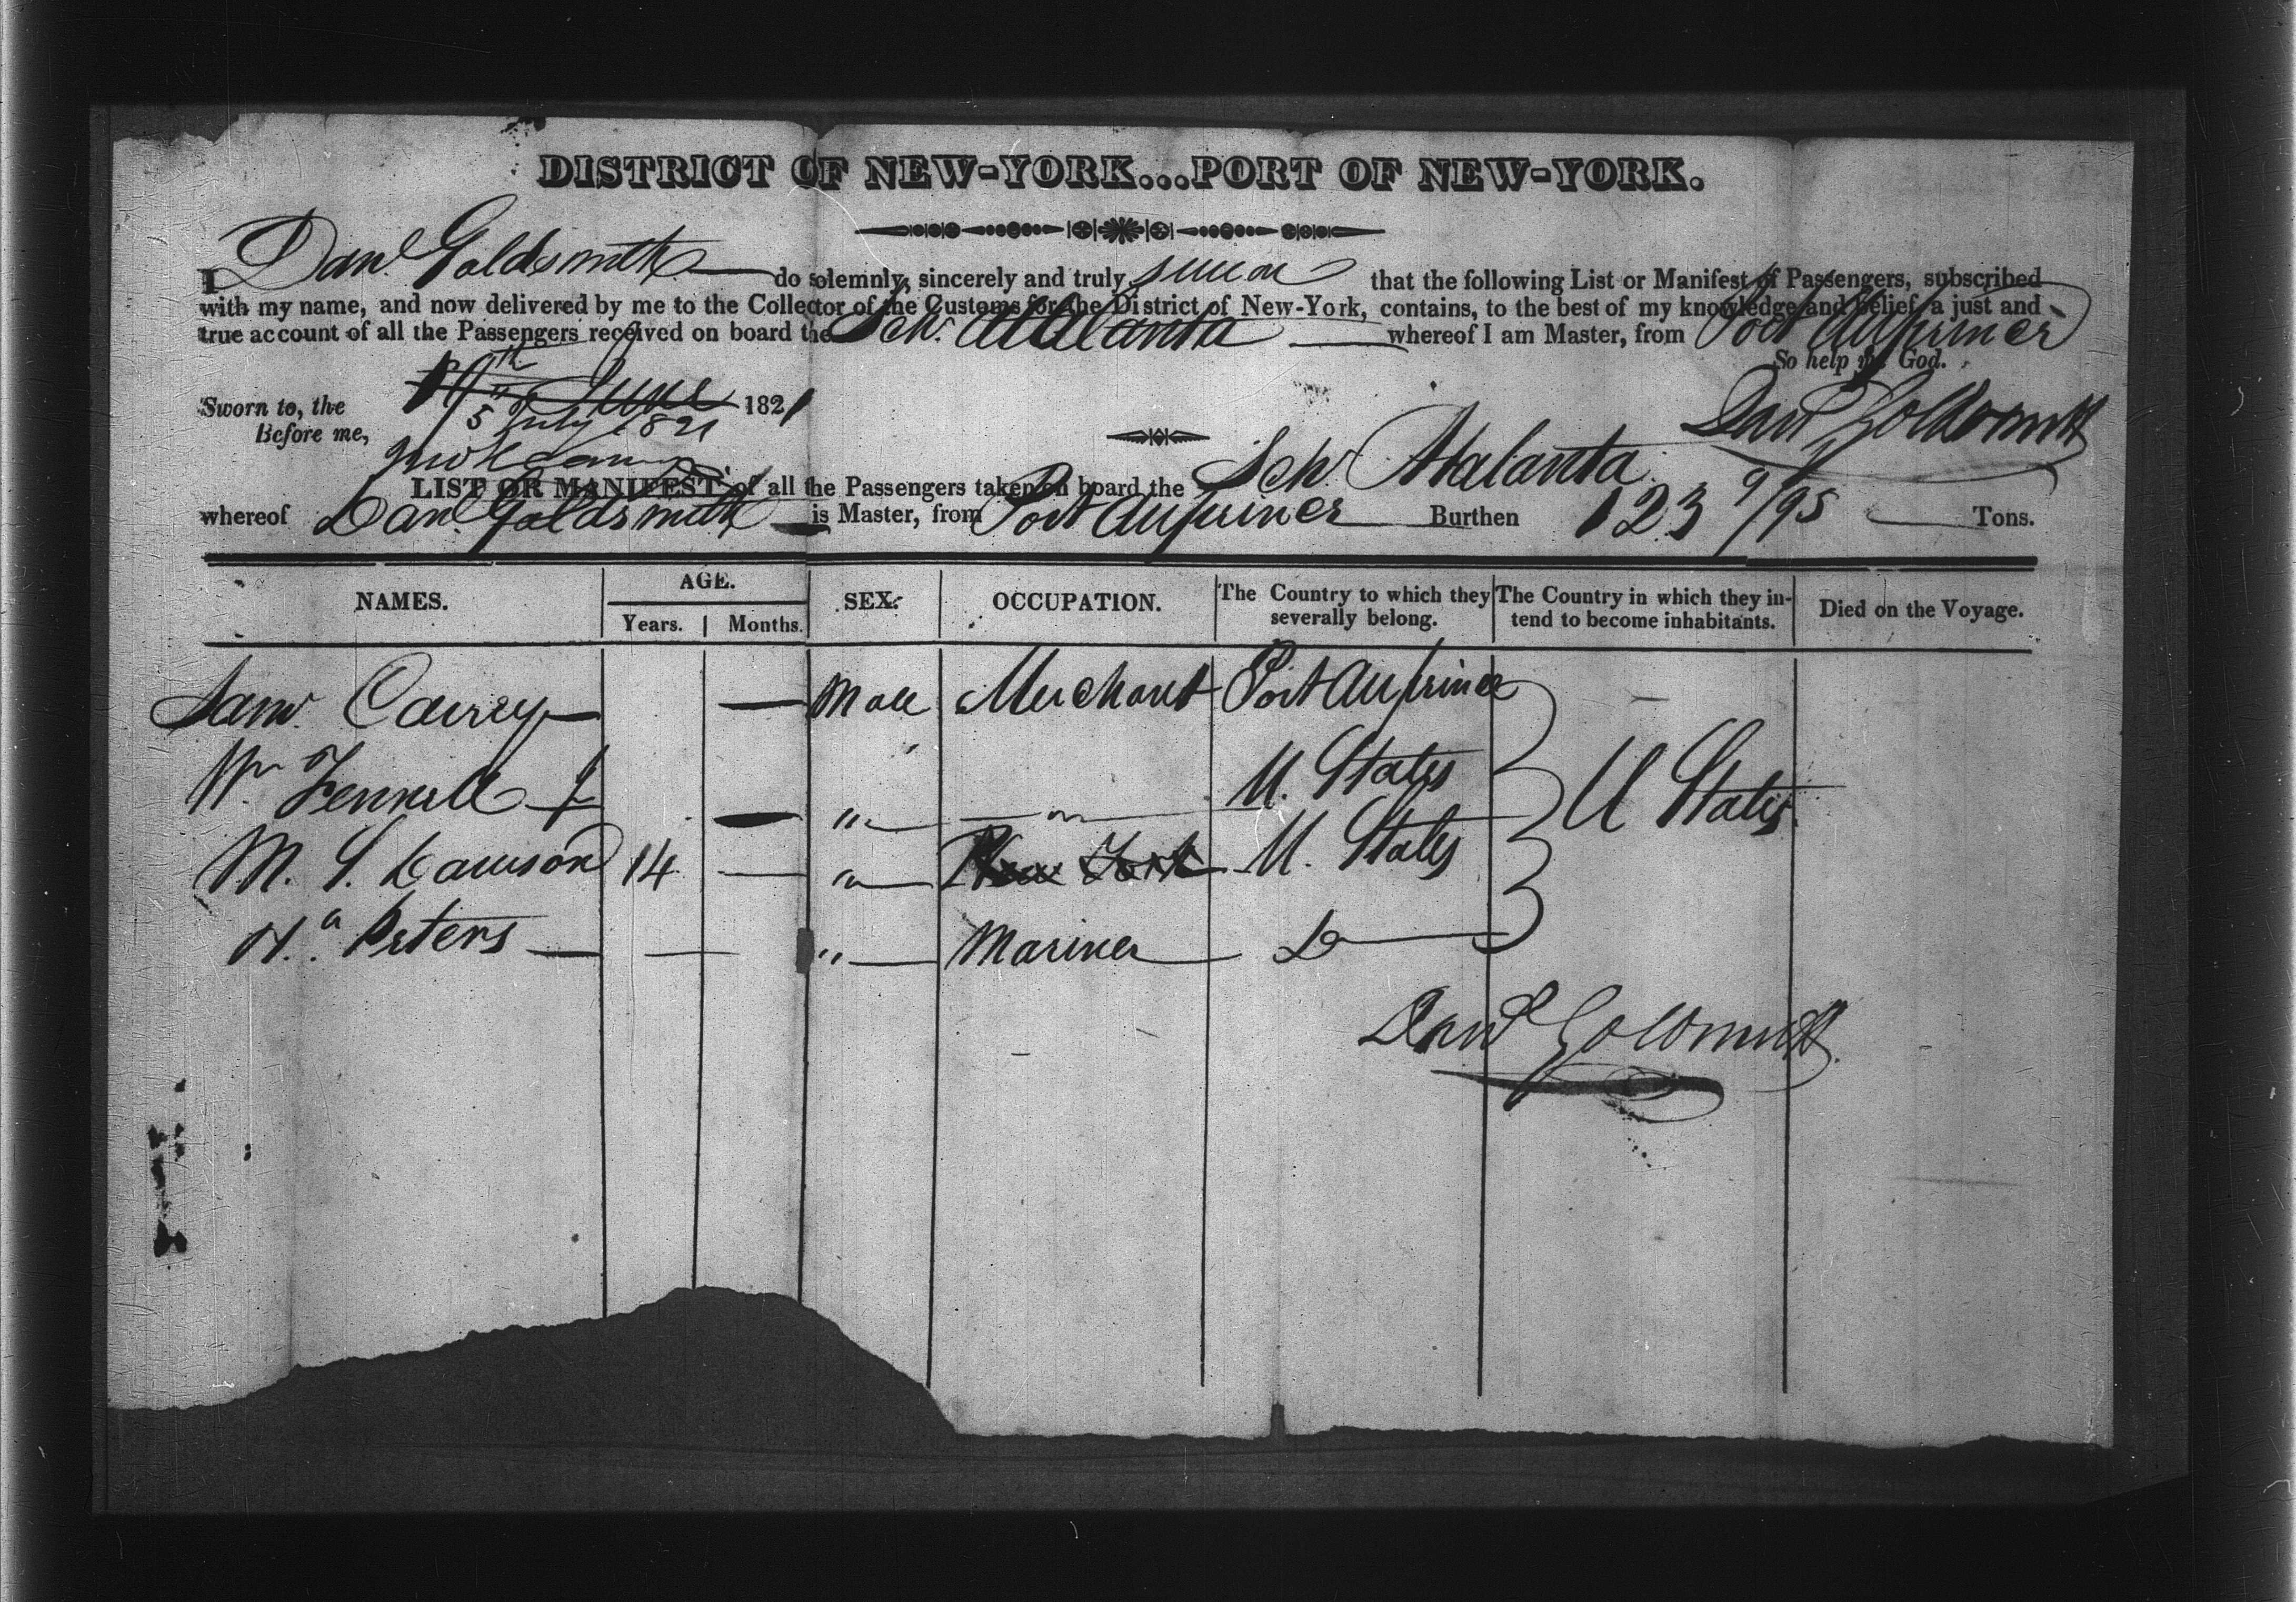 DISTRICT OF NEW-YORK...PORT OF NEW-YORK.
I Danl Goldsmith do solemnly, sincerely and truly swear that the following List or Manifest of Passengers, subscribed
with my name, and now delivered by me to the Collector of the Customs for the District of New-York, contains, to the best of my knowledge and belief, a just and
true account of all the Passengers received on board the Schr Atalanta whereof I am Master, from Port Auprince
So help me God.
Sworn to, the 10th June 1821
5 July 1821
Before me,
Danl Goldsmith
LIST OR MANIFEST of all the Passengers taken on board the Schr Atalanta
whereof Danl Goldsmith is Master, from Port Auprince Burthen 123 9/95 Tons.
NAMES. AGE. SEX. OCCUPATION. The Country to which they severally belong. The Country in which they intend to become inhabitants. Died on the Voyage.
Years. Months.
Saml — Male Merchant Port Auprince
Wm Fennell — " " U. States U States
M. S. Dawson 14 — " New York U. States
Ha. Peters — " Mariner Do
Danl Goldsmith